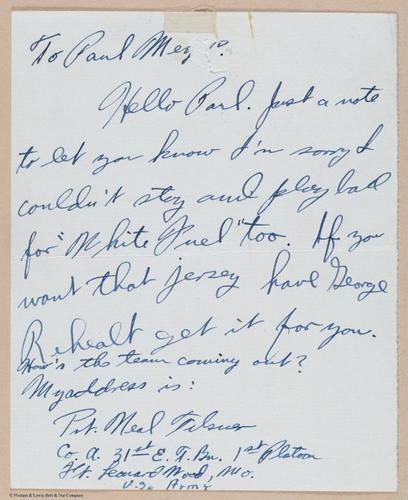 To Paul
Hello Paul. Just a note
to let you know I'm sorry I
couldn't stay and play ball
for "White Fuel" too. If you
want that jersey have George
get it for you.
How's the team coming out?
My address is:
Pvt. Neal
Co. A. 31st E. T. Bn. 1st Platoon
Ft. Leonard Wood, Mo.
U.S. Army